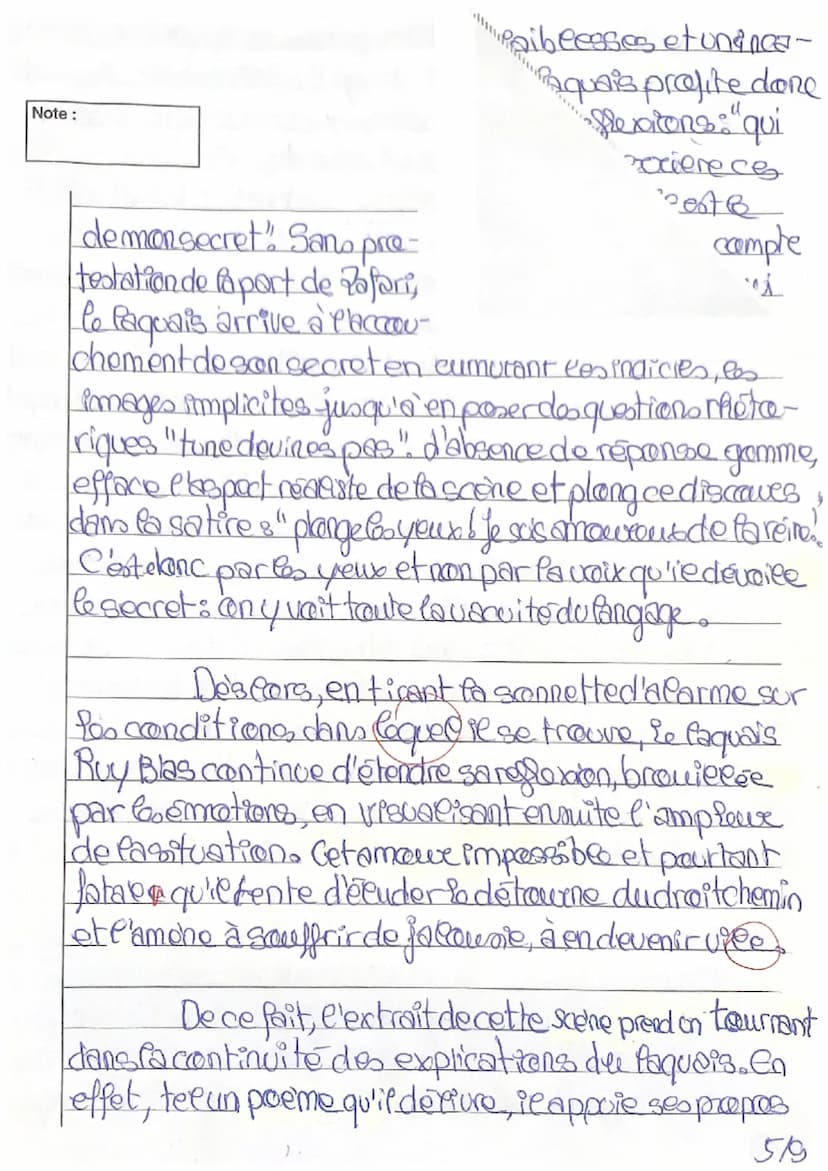 faiblesses et un inca-
laquais profite donc
flexions : "qui
rrière ces
est le
compte
Note :
de mon secret". Sans pro-
testation de la part de Zafari,
le laquais arrive à l'accou-
chement de son secret en cumulant les indices, les
images implicites jusqu'à en poser des questions rhéto-
riques "tu ne devines pas". L'absence de réponse gomme,
efface l'aspect réaliste de la scène et plonge ce discours,
dans la satire : "plonge les yeux ! je suis amoureux de la reine!"
C'est donc par les yeux et non par la voix qu'il dévoile
le secret : on y voit toute la vacuité du langage.
Dès lors, en tirant la sonnette d'alarme sur
les conditions dans lequel il se trouve, le laquais
Ruy Blas continue d'étendre sa réflexion, brouillée
par les émotions, en visualisant ensuite l'ampleur
de la situation. Cet amour impossible et pourtant
fatale qu'il tente d'éluder le détourne du droit chemin
et l'amène à souffrir de jalousie, à en devenir vile.
De ce fait, l'extrait de cette scène prend un tournant
dans la continuité des explications du laquais. En
effet, tel un poème qu'il délivre, il appuie ses propos
5/9